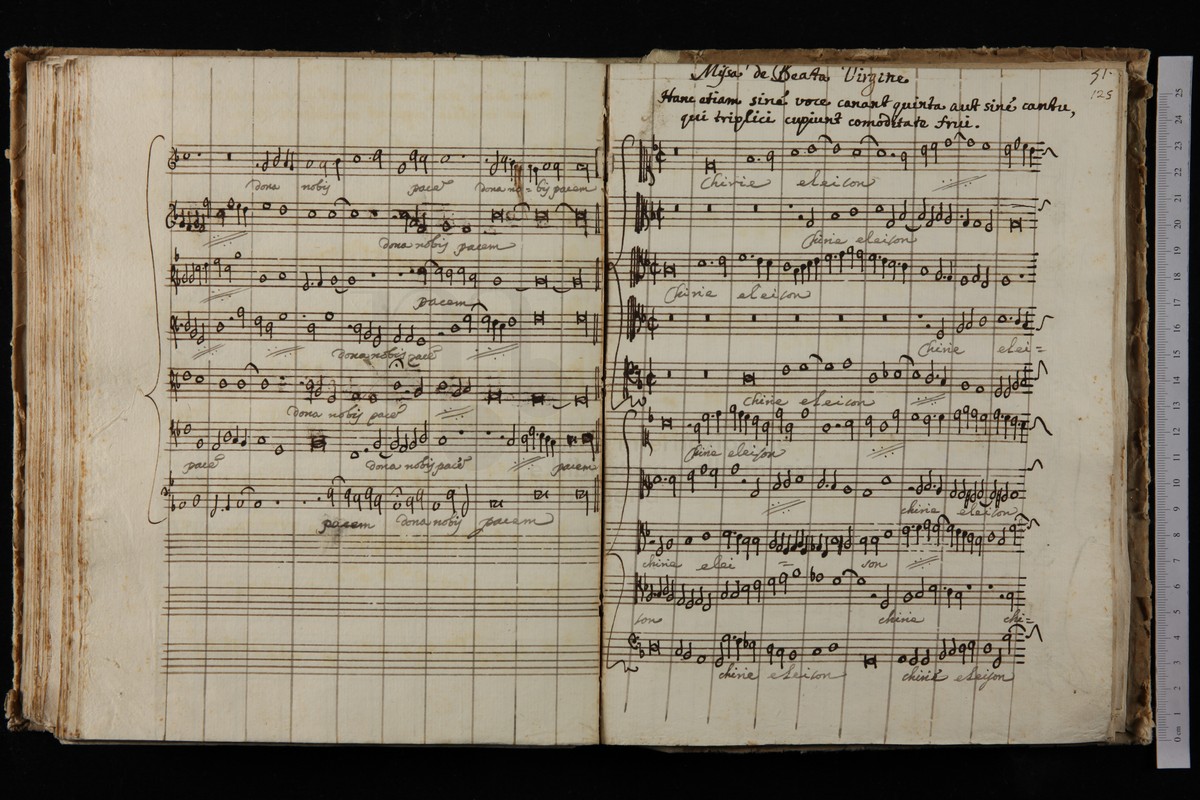 dona nobis pace dona no = bis pacem
dona nobis pacem
pacem
dona nobis pace
dona nobis pace
pace dona nobis pace pacem
pacem dona nobis pacem
Missa de Beata Virgine
51.
125
Hanc etiam siné voce canant quinta aut siné cantu,
qui triplici cupiunt comoditate frui.
Chirie eleison
Chirie eleison
Chirie eleison
Chirie elei=
Chirie eleison
Chirie eleison
chirie eleison
chirie elei = son
son chirie chi=
chirie eleison chirie eleison